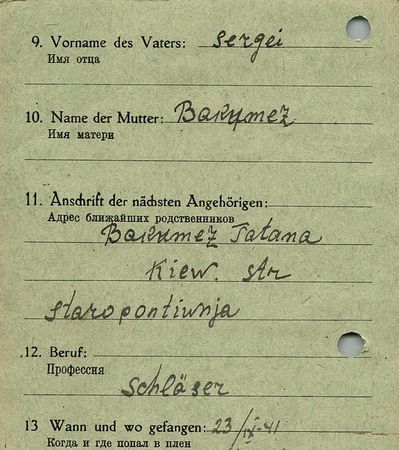 9. Vorname des Vaters: Sergei
Имя отца
10. Name der Mutter: Bakumez
Имя матери
11. Anschrift der nächsten Angehörigen:
Адрес ближайших родственников
Bakumez Tatana
Kiew. str
staropontiwnja
12. Beruf:
Профессия
Schläser
13 Wann und wo gefangen: 23/IX-41
Когда и где попал в плен